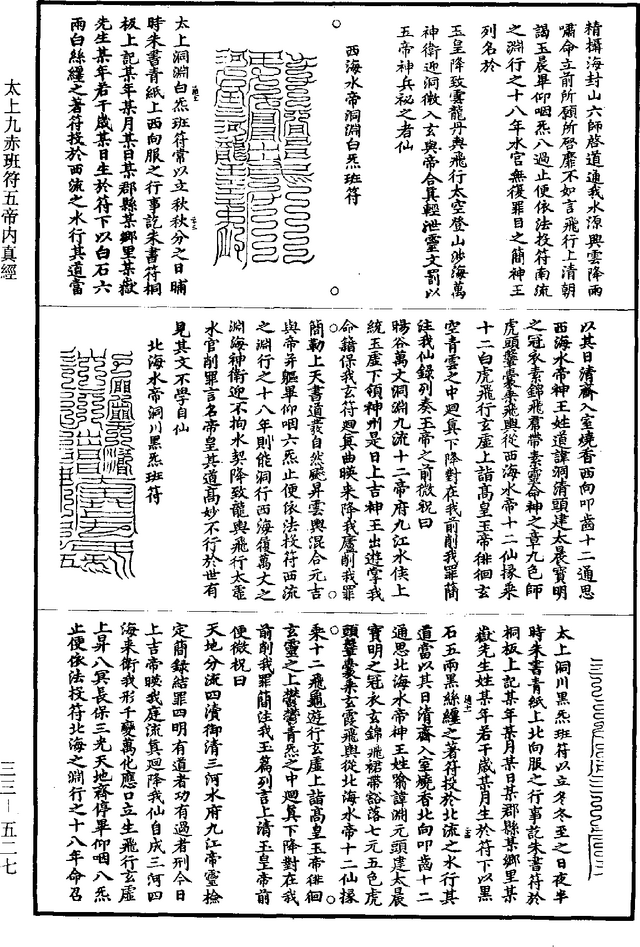 精攝海封山六師啓道通我水源興雲降雨
嘯命立前所願所啓靡不如言飛行上清朝
謁玉晨畢仰咽炁八過止便依法投符南流
之淵行之十八年水官無復罪目之簡神王
列名於
玉皇降致雲龍丹輿飛行太空登山涉海萬
神衛迎洞微入玄與帝合真輕泄靈文罰以
五帝神兵祕之者仙
西海水帝洞淵白炁班符
太上洞淵白炁班符常以立秋秋分之日晡
時朱書青紙上西向服之行事訖朱書符桐
板上記某年某月某日某郡縣某鄉里某嶽
先生某年若干歲某日生於符下以白石六
兩白絲纏之著符投於西流之水行其道當
以其日清齋入室燒香西向叩齒十二通思
西海水帝神王姓道諱洞清頭建太晨寶明
之冠衣素錦飛帬帶素靈命神之章九色師
虎頭鞶囊乘飛輿從西海水帝十二仙掾乘
十二白虎飛行玄虛上詣高皇玉帝徘徊玄
空青雲之中迴真下降對在我前削我罪簡
注我仙錄列奏玉帝之前微祝曰
暘谷萬丈洞淵九流十二帝府九江水侯上
統玉虛下領神州是日上吉神王出遊掌我
命籍保我玄符迴真曲映來降我廬削我罪
簡勒上天書道養自然飈昇雲輿混合元吉
與帝并軀畢仰咽六炁止便依法投符西流
之淵行之十八年則能洞行西海履萬丈之
淵海神衛迎不拘水契降致龍輿飛行太虛
水官削罪言名帝皇其道高妙不行於世有
見其文不學自仙
北海水帝洞川黑炁班符
太上洞川黑炁班符以立冬冬至之日夜半
時朱書青紙上北向服之行事訖朱書符於
桐板上記某年某月某日某郡縣某鄉里某
嶽先生姓某年若干歲某月生於符下以黑
石五兩黑絲纏之著符投於北流之水行其
道當以其日清齋入室燒香北向叩齒十二
通思北海水帝神王姓喻諱淵元頭建太晨
寶明之冠衣玄錦飛裙帶豁落七元五色虎
頭鞶囊乘玄霞飛輿從北海水帝十二仙掾
乘十二飛龜遊行玄虛上詣高皇玉帝徘徊
玄靈之上鬱鬱青炁之中迴真下降對在我
前削我罪簡注我玉篇列言上清玉皇帝前
便微祝曰
天地分流四瀆御清三河水府九江帝靈檢
定簡錄結罪四明有道者功有過者刑今日
上吉帝映我庭流真迴降我仙自成三河四
海來衛我形千變萬化應口立生飛行玄虛
上昇八冥長保三光天地齊停畢仰咽八炁
止便依法投符北海之淵行之十八年命召
太上九赤班符五帝內真經
三三—五二七